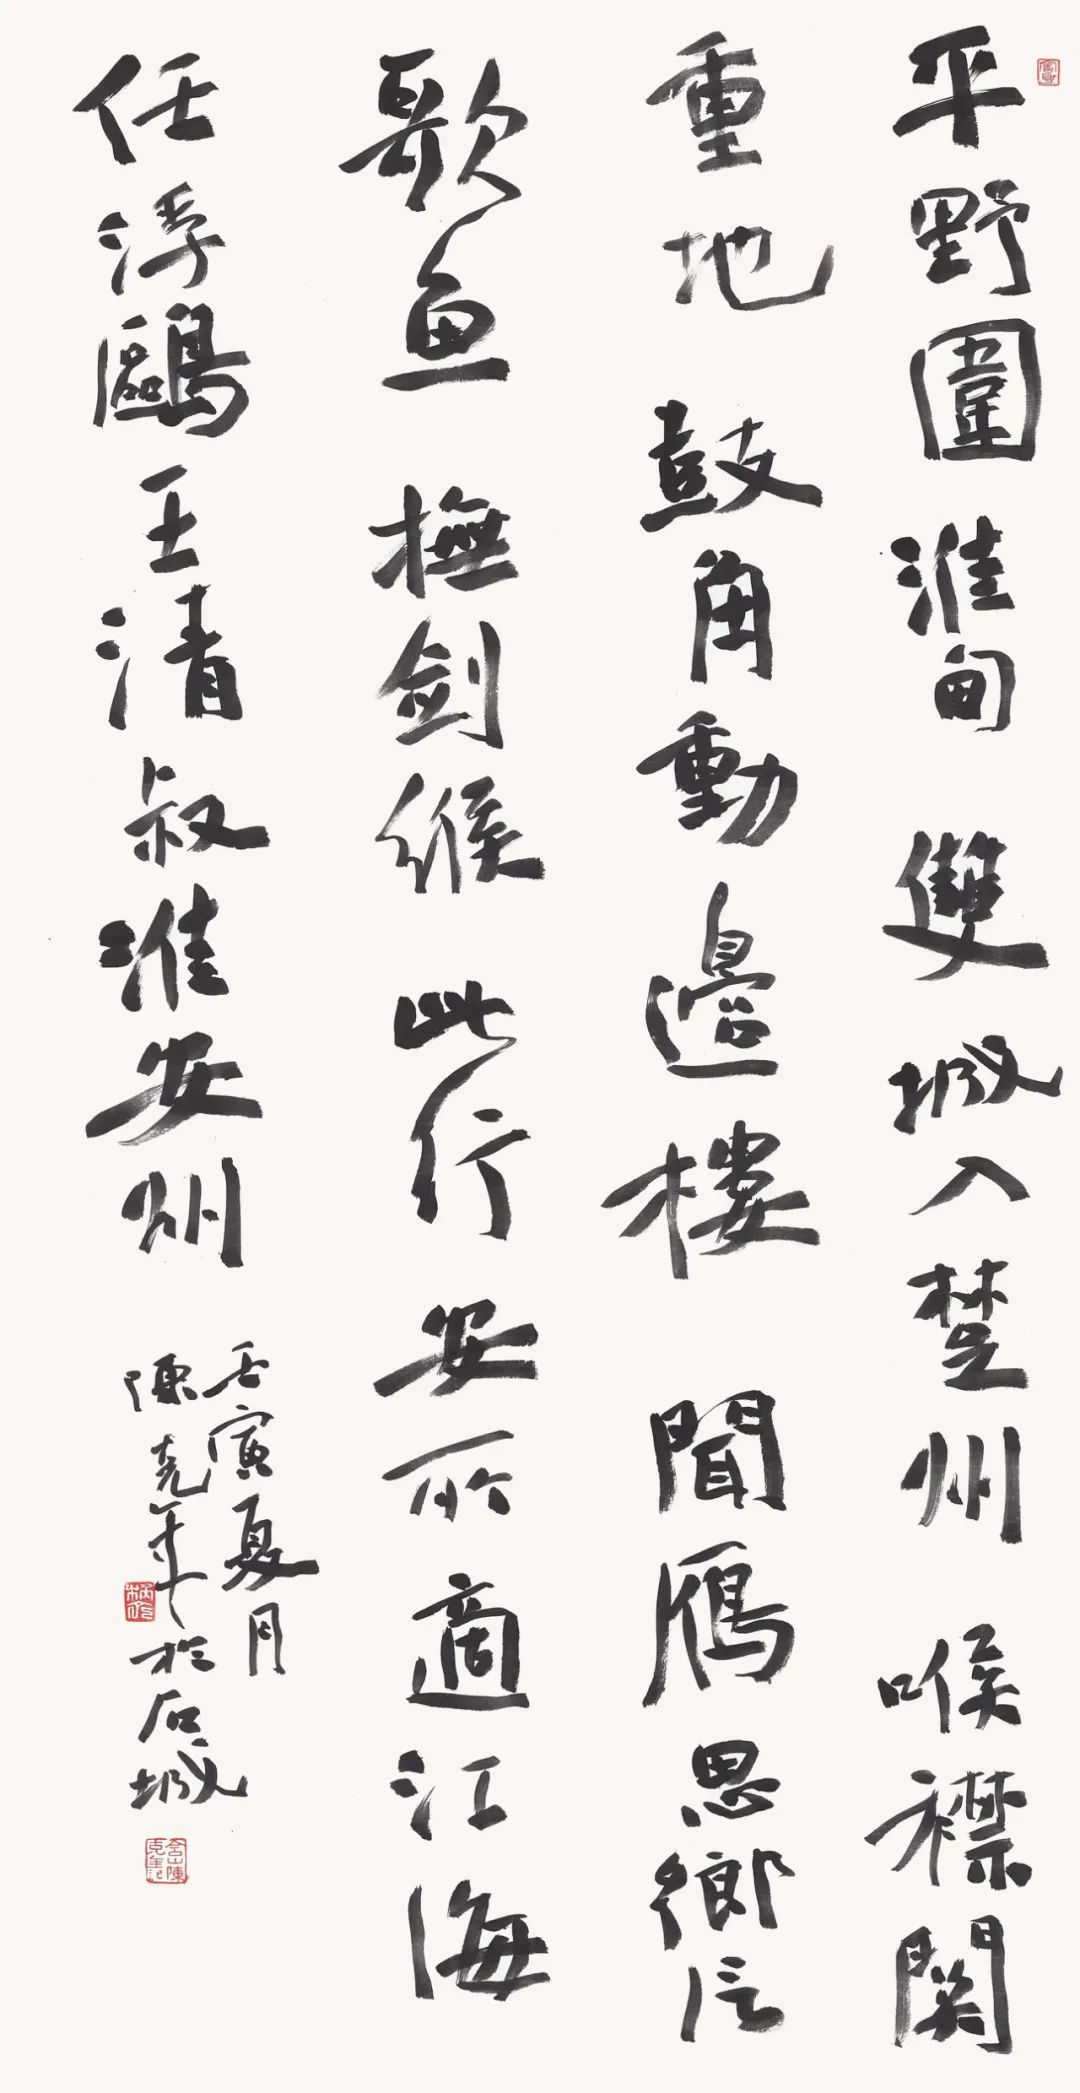 平野圍淮甸雙城入楚州喉襟關
重地鼓角動邊樓聞鴈思鄉信
歌魚撫劍緱此行安所適江海
任浮鷗王清叔淮安州
壬寅夏月
陳克年於石城